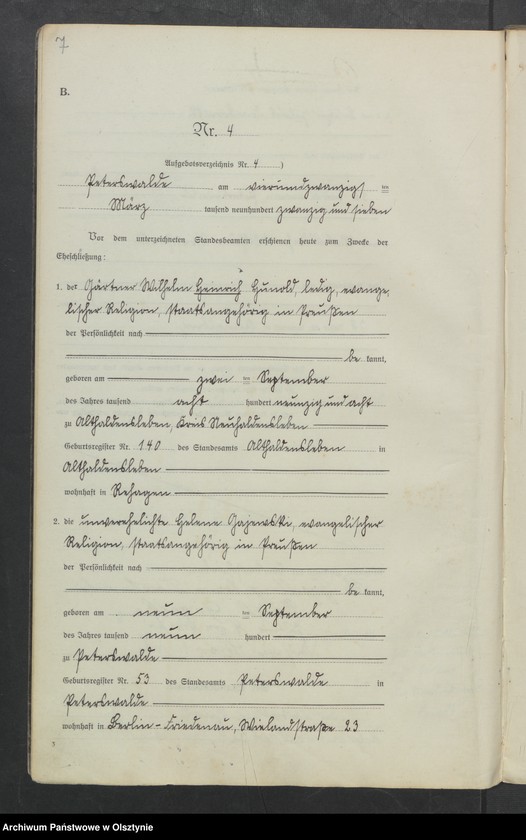 7
B.
Nr. 4
Aufgebotsverzeichnis Nr. 4 )
Peterswalde am vierundzwanzigsten
März tausend neunhundert zwanzig und sieben
Vor dem unterzeichneten Standesbeamten erschienen heute zum Zwecke der
Eheschließung:
1. der Gärtner Wilhelm Heinrich Hunold, ledig, evange-
lischer Religion, staatsangehörig in Preußen
der Persönlichkeit nach
be kannt,
geboren am zwei ten September
des Jahres tausend acht hundert neunzig und acht
zu Althaldensleben, Kreis Neuhaldensleben
Geburtsregister Nr. 140 des Standesamts Althaldensleben in
Althaldensleben
wohnhaft in Rehagen
2. die unverehelichte Helene Gajewski, evangelischer
Religion, staatsangehörig in Preußen
der Persönlichkeit nach
be kannt,
geboren am neun ten September
des Jahres tausend neun hundert
zu Peterswalde
Geburtsregister Nr. 53 des Standesamts Peterswalde in
Peterswalde
wohnhaft in Berlin-Friedenau, Wielandstraße 23
Archiwum Państwowe w Olsztynie